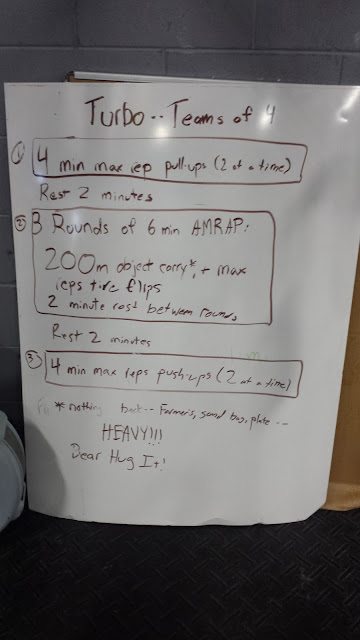 Turbo -- Teams of 4
① 4 min max rep pull-ups (2 at a time)
Rest 2 minutes
② 3 Rounds of 6 min AMRAP:
200m object carry*, + max
reps tire flips
2 minute rest between rounds
Rest 2 minutes
③ 4 min max reps push-ups (2 at a time)
* nothing back -- Farmer's, sand bag, plate --
HEAVY!!!
Dear Hug It!